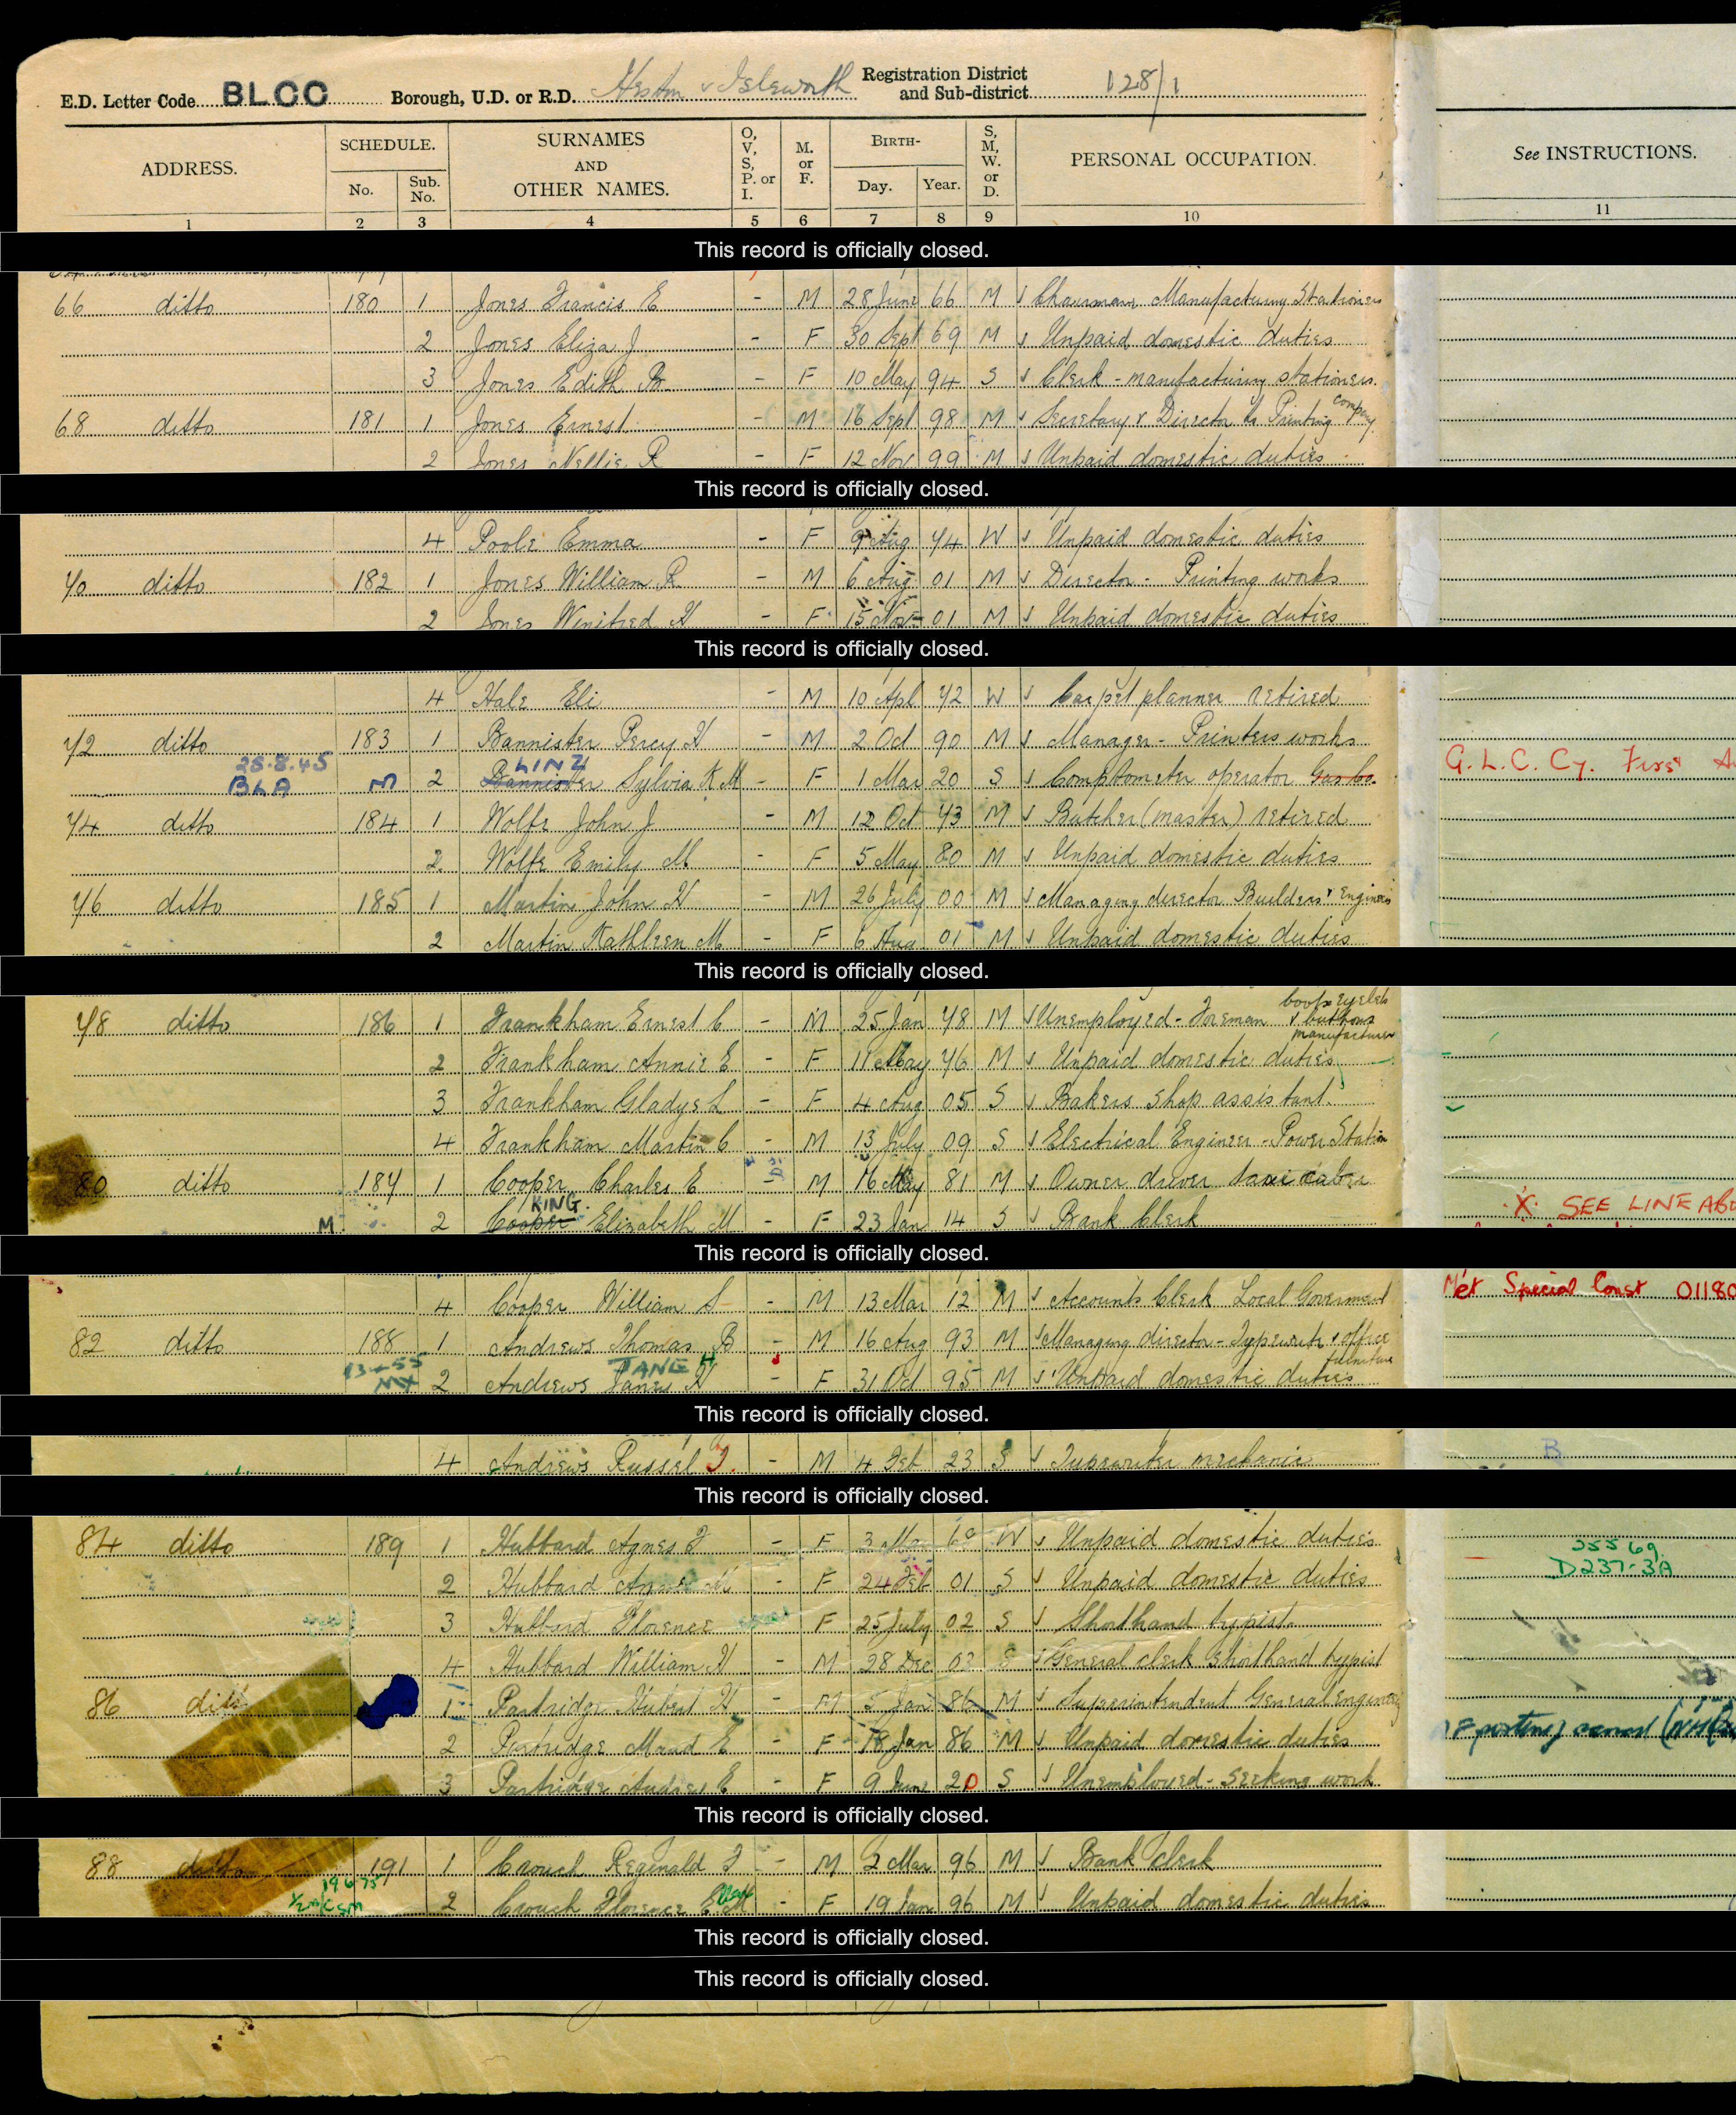 E.D. Letter Code BLCC Borough, U.D. or R.D. Heston & Isleworth Registration District and Sub-district 128/1
ADDRESS. SCHEDULE. No. Sub. No. SURNAMES AND OTHER NAMES. O, V, S, P. or I. M. or F. BIRTH- Day. Year. S, M, W. or D. PERSONAL OCCUPATION. See INSTRUCTIONS.
1 2 3 4 5 6 7 8 9 10 11
This record is officially closed.
66 ditto 180 1 Jones Francis E - M 28 June 66 M Chairman Manufacturing Stationers
2 Jones Eliza J - F 30 Sept 69 M Unpaid domestic duties
3 Jones Edith B - F 10 May 94 S Clerk - manufacturing stationers.
68 ditto 181 1 Jones Ernest - M 16 Sept 98 M Secretary & Director to Printing company
2 Jones Nellie R - F 12 Nov 99 M Unpaid domestic duties
This record is officially closed.
4 Poole Emma - F 9 Aug 74 W Unpaid domestic duties
70 ditto 182 1 Jones William R - M 6 Aug 01 M Director - Printing works
2 Jones Winifred H - F 15 Nov 01 M Unpaid domestic duties
This record is officially closed.
4 Hale Eli - M 10 Apl 72 W Carpet planner retired
72 ditto 183 1 Bannister Percy H - M 2 Oct 90 M Manager - Printers works
28.8.45 BLA M 2 Bannister LINZ Sylvia K M - F 1 Mar 20 S Comptometer operator Gas Co. G.L.C. Cy. First
74 ditto 184 1 Wolfe John J - M 12 Oct 73 M Butcher (master) retired
2 Wolfe Emily M - F 5 May 80 M Unpaid domestic duties
76 ditto 185 1 Martin John H - M 26 July 00 M Managing director Builders & Engineers
2 Martin Kathleen M - F 6 Aug 01 M Unpaid domestic duties
This record is officially closed.
78 ditto 186 1 Frankham Ernest C - M 25 Jan 78 M Unemployed - Foreman boot eyelets & buttons manufacturer
2 Frankham Annie E - F 11 May 76 M Unpaid domestic duties
3 Frankham Gladys L - F 4 Aug 05 S Bakers shop assistant
4 Frankham Martin C - M 13 July 09 S Electrical Engineer - Power Station
80 ditto 187 1 Cooper Charles E - M 16 May 81 M Owner driver taxi cab
M. 2 Cooper KING Elizabeth M - F 23 Jan 14 S Bank Clerk X SEE LINE ABO
This record is officially closed.
4 Cooper William S - M 13 Mar 12 M Accounts Clerk Local Goverment Met Special Const 01180
82 ditto 188 1 Andrews Thomas B - M 16 Aug 93 M Managing director - Typewriter & office furniture
MX 2 Andrews JANE H - F 31 Oct 95 M Unpaid domestic duties
This record is officially closed.
4 Andrews Russel J. - M 4 Feb 23 S Typewriter mechanic B
This record is officially closed.
84 ditto 189 1 Hubbard Agnes F - F 3 Mar 68 W Unpaid domestic duties 35569
2 Hubbard M - F 24 Feb 01 S Unpaid domestic duties D237-3A
3 Hubbard Florence F 25 July 02 S Shorthand typist
4 Hubbard William H - M 28 Dec 03 S General clerk shorthand typist
86 ditto 1 Partridge Hubert H - M 5 Jan 86 M Superintendent General Engineering
2 Partridge Maud E - F 18 Jan 86 M Unpaid domestic duties
3 Partridge Audrey E - F 9 June 20 S Unemployed - Seeking work
This record is officially closed.
88 ditto 191 1 Crouch Reginald F - M 2 Mar 96 M Bank clerk
2 Crouch Florence E M - F 19 Jan 96 M Unpaid domestic duties
This record is officially closed.
This record is officially closed.